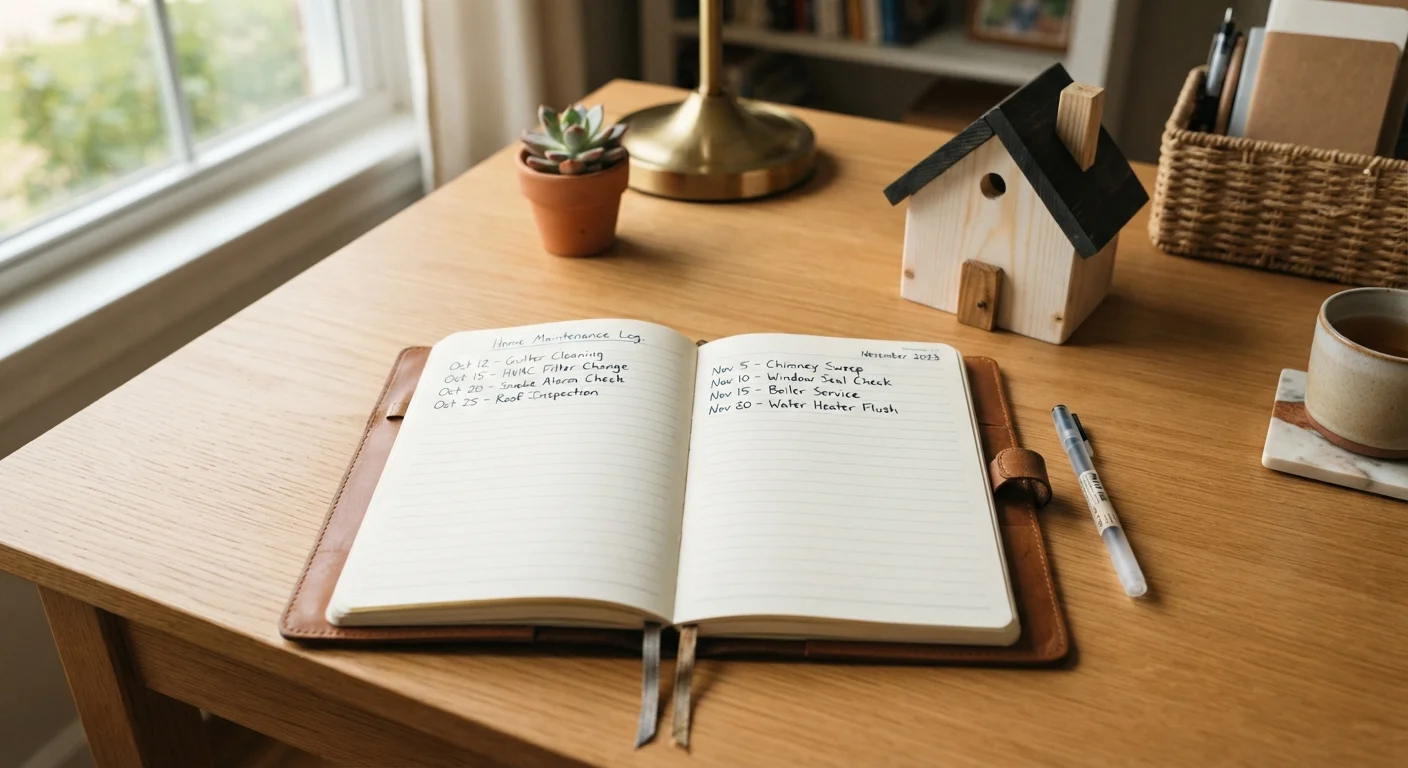 Home Maintenance Log.
Oct 12 - Gutter Cleaning
Oct 15 - HVAC Filter Change
Oct 20 - Smoke Alarm Check
Oct 25 - Roof Inspection
November 2023
Nov 5 - Chimney Sweep
Nov 10 - Window Seal Check
Nov 15 - Boiler Service
Nov 20 - Water Heater Flush